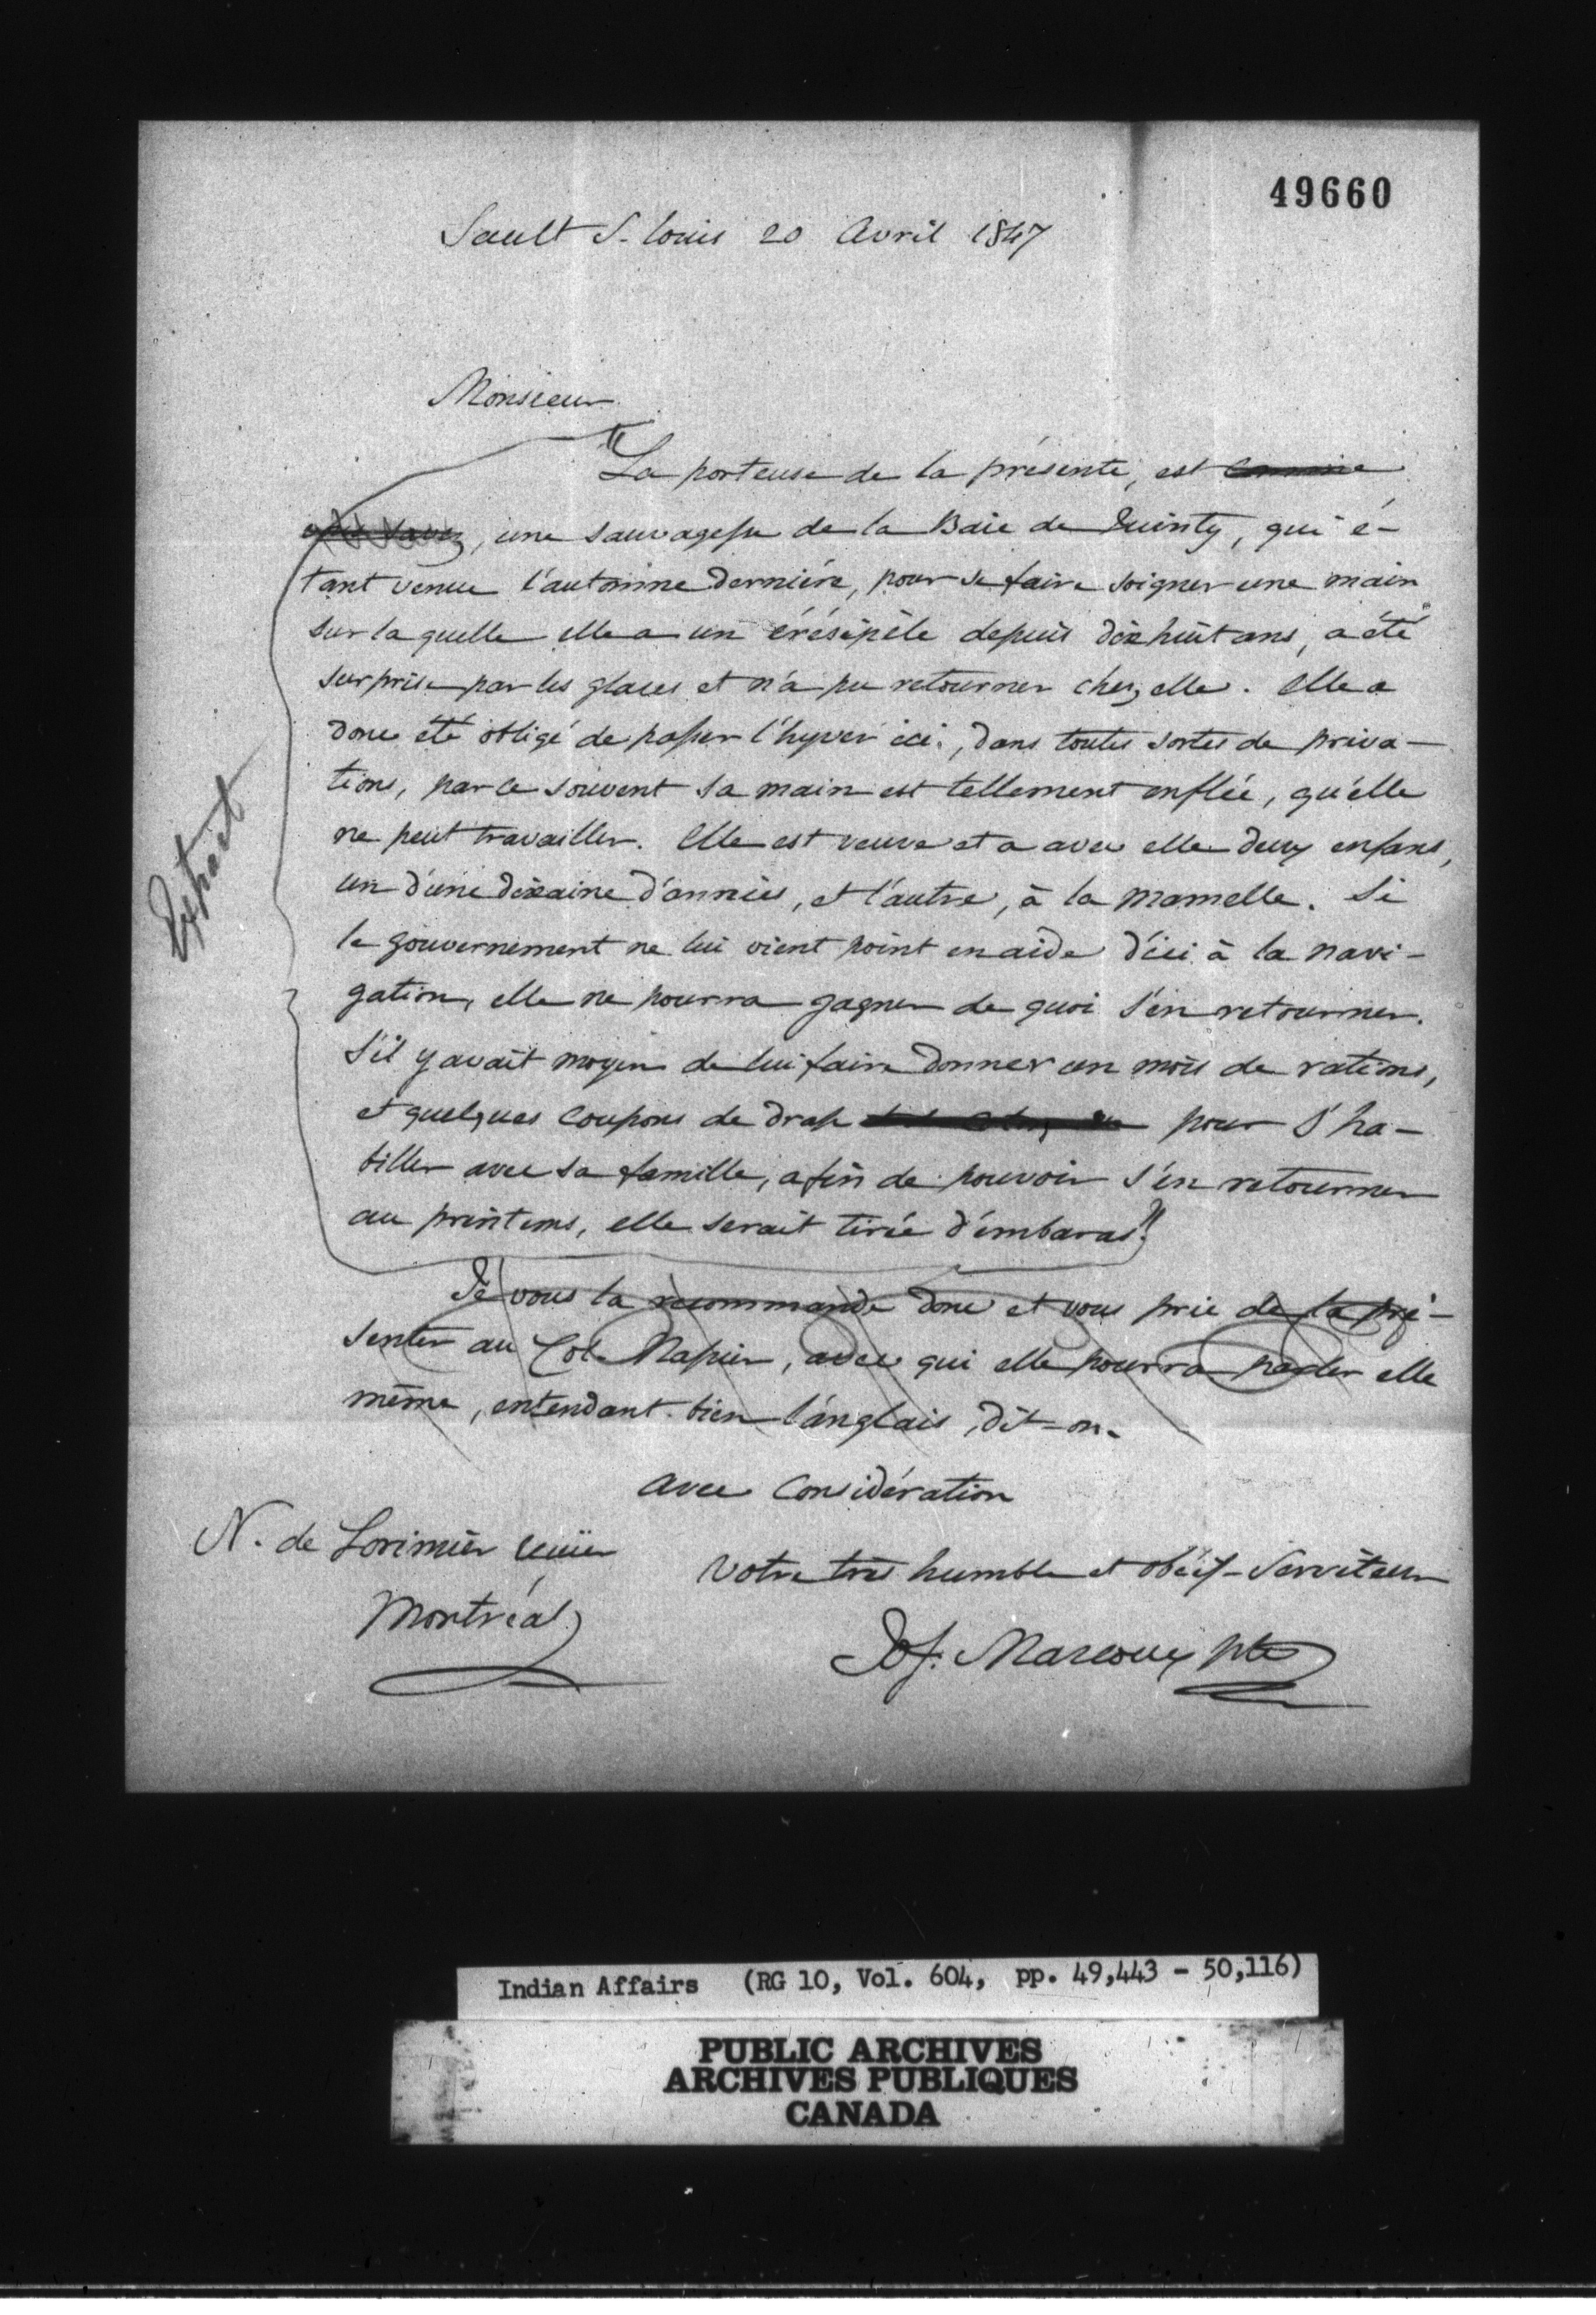 49660
Sault S. Louis 20 Avril 1847
Monsieur
"La porteuse de la présente, est comme
vous savez, une sauvagesse de la Baie de Quinty, qui é-
tant venue l'automne dernière, pour se faire soigner une main
sur laquelle elle a un érésipèle depuis dixhuit ans, a été
surprise par les glaces et n'a pu retourner chez elle. Elle a
donc été obligé de passer l'hyver ici, dans toutes sortes de priva-
tions, parce souvent sa main est tellement enflée, qu'elle
ne peut travailler. Elle est veuve et a avec elle deux enfans,
un d'une dixaine d'années, et l'autre, à la mamelle. Si
le gouvernement ne lui vient point en aide d'ici à la navi-
gation, elle ne pourra gagner de quoi s'en retourner.
S'il y avait moyen de lui faire donner un mois de rations,
et quelques coupons de drap pour s'ha-
biller avec sa famille, afin de pouvoir s'en retourner
au printems, elle serait tirée d'embaras."
Extrait
Je vous la recommande donc et vous prie de la pré-
senter au Col. Napier, avec qui elle pourra parler elle
même, entendant bien l'anglais, dit-on.
avec Considération
N. de Lorimier
Votre très humble et obéiss- Serviteur
Montréal
Jos. Marcoux ptre
Indian Affairs (RG 10, Vol. 604, pp. 49,443 - 50,116)
PUBLIC ARCHIVES
ARCHIVES PUBLIQUES
CANADA